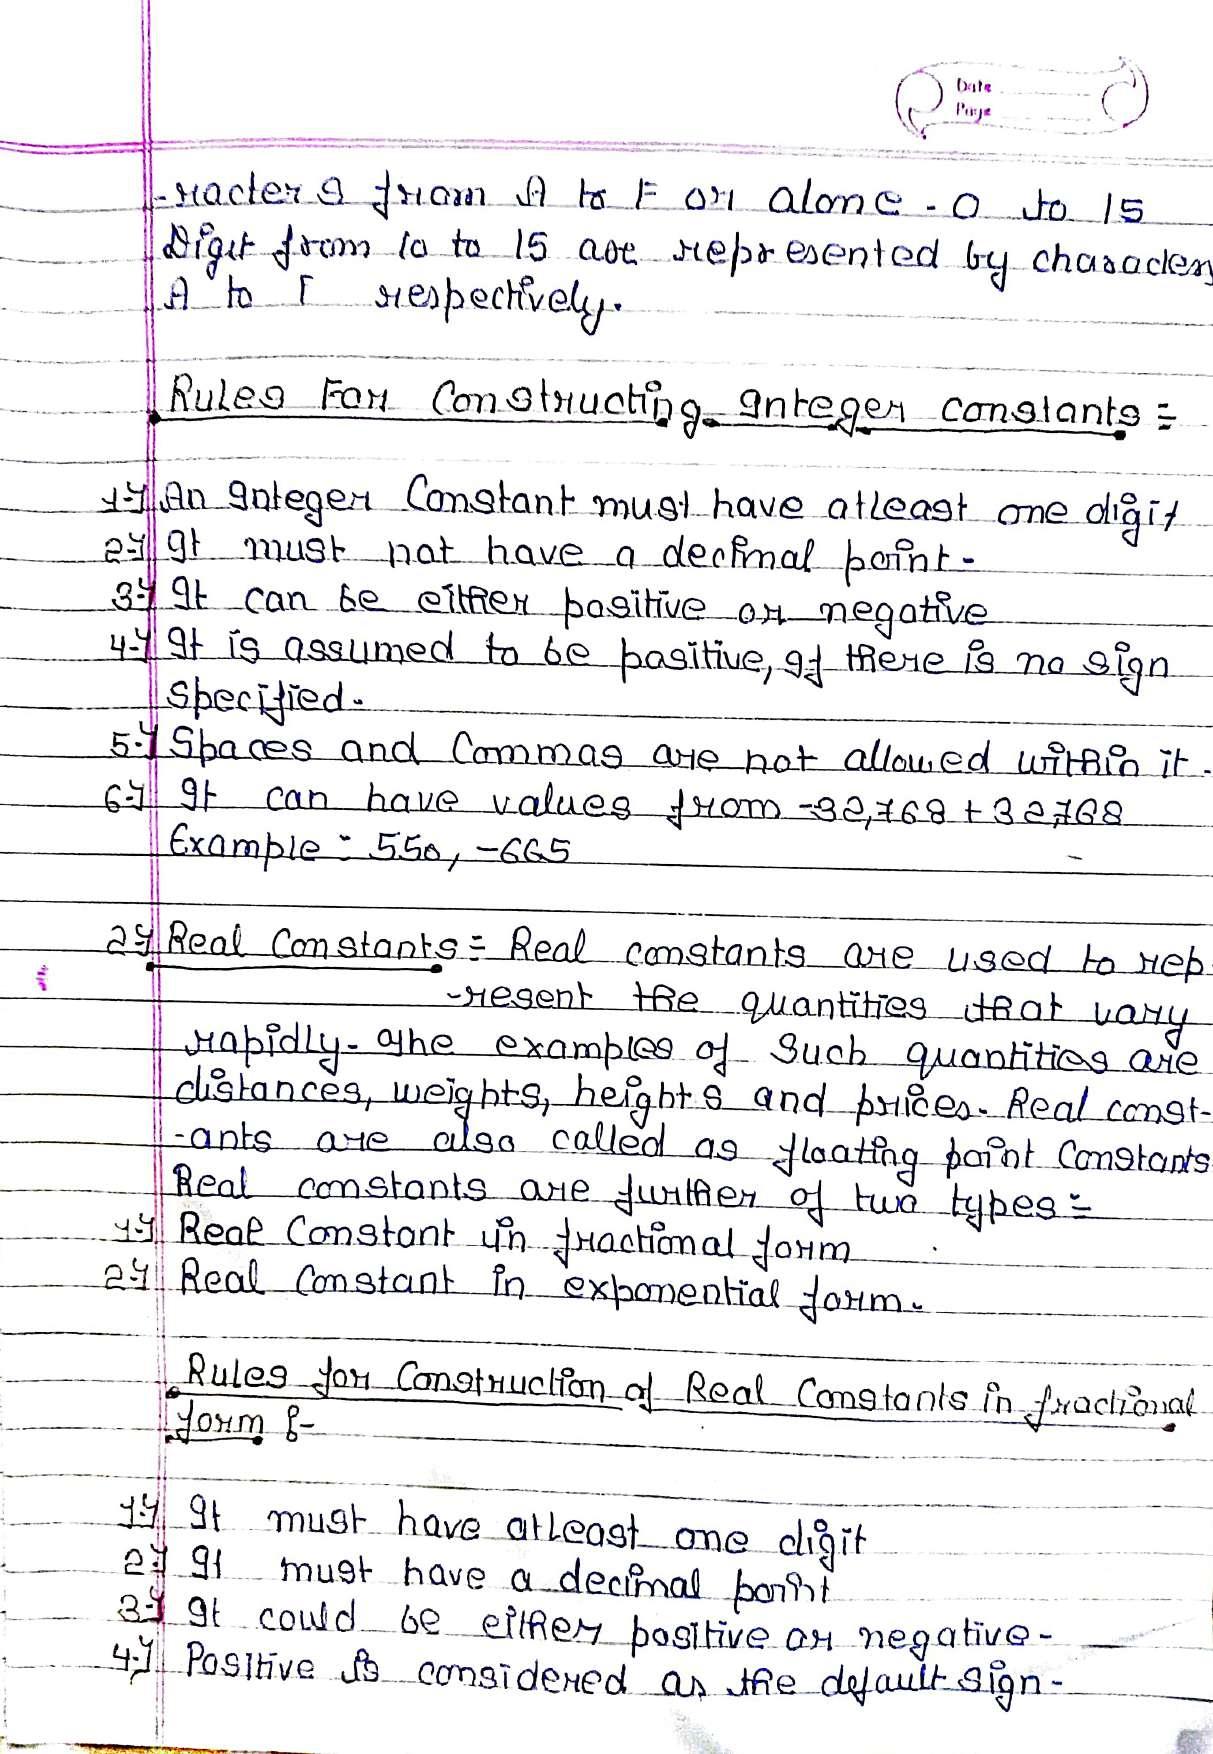 Date
Page
-racters from A to F or alone - 0 to 15
Digit from 10 to 15 are represented by character
A to F respectively.
Rules For Constructing Integer Constants =
1-> An Integer Constant must have atleast one digit
2-> It must not have a decimal point -
3-> It can be either positive or negative
4-> It is assumed to be positive, If there is no sign
specified.
5-> Spaces and Commas are not allowed within it.
6-> It can have values from -32,768 + 32,768
Example : 550, -665
2-> Real Constants = Real constants are used to rep
-resent the quantities that vary
rapidly. The examples of Such quantities are
distances, weights, heights and prices. Real const-
-ants are also called as floating point Constants
Real constants are further of two types =
1-> Real Constant in fractional form
2-> Real Constant in exponential form.
Rules for Construction of Real Constants in fractional
form :-
1-> It must have atleast one digit
2-> It must have a decimal point
3-> It could be either positive or negative -
4-> Positive is considered as the default sign -